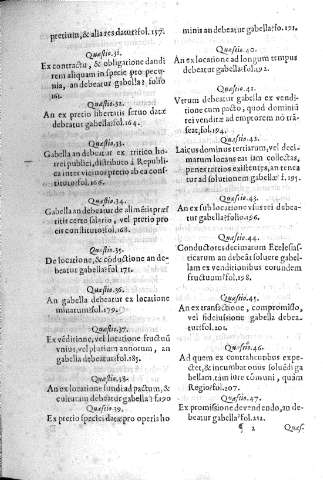 pretium, & alia res datur? fol. 157.
Quæstio.31.
Ex contractu, & obligatione dandi
rem aliquam in specie pro pecu-
nia, an debeatur gabella? fulso
161.
Quæstio.32.
An ex pretio libertatis seruo datæ
debeatur gabella? fol.164.
Quæstio.33.
Gabella an debeatur ex tritico ho-
rrei publici, distributo à Republi-
ca inter vicinos pretio ab ea cons-
tituto? fol.166.
Quæstio.34.
Gabella an debeatur de alimētis præs
titis certo salario, vel pretio pro
eis constituto? fol.168.
Quæstio.35.
De locatione, & conductione an de-
beatur gabella? fol.171.
Quæstio.36.
An gabella debeatur ex locatione
minarum? fol.179.
Quæstio.37.
Ex vēditione, vel locatione fructuū
vnius, vel plurium annorum, an
gabella debeatur? fol.185.
Quæstio.38.
An ex locatione fundi ad pastum, &
culturam debeatur gabella? f.190
Quæstio.39.
Ex pretio species datæ pro opera ho
minis an debeatur gabella? fo.191.
Quæstio.40.
An ex locatione ad longum tempus
debeatur gabella? fol.192.
Quæstio.41.
Vtrum debeatur gabella ex vendi-
tione cum pacto, quod dominiū
rei venditæ ad emptorem nō trā-
seat, fol.194.
Quæstio.42.
Laicus dominus tertiarum, vel deci
marum locans eas iam collectas,
penes tertios existentes, an tenea
tur ad solutionem gabellæ? f.195.
Quæstio.43.
An ex sub locatione vlusrei debea-
tur gabella? folio.196.
Quæstio.44.
Conductores decimarum Ecclesias-
ticarum an debeāt soluere gabel-
lam ex venditionibus eorundem
fructuum? fol.198.
Quæstio.45.
An ex transactione, compromisso,
vel fideiussione gabella debea-
tur? fol.201.
Quæstio.46.
Ad quem ex contrahentibus expe-
ctet, & incumbat onus soluēdi ga
bellam, tàm iure cōmuni, quàm
Regio? fol.207.
Quæstio.47.
Ex promissione de vendendo, an de-
beatur gabella? fol.212.
¶ 2 Quæs-